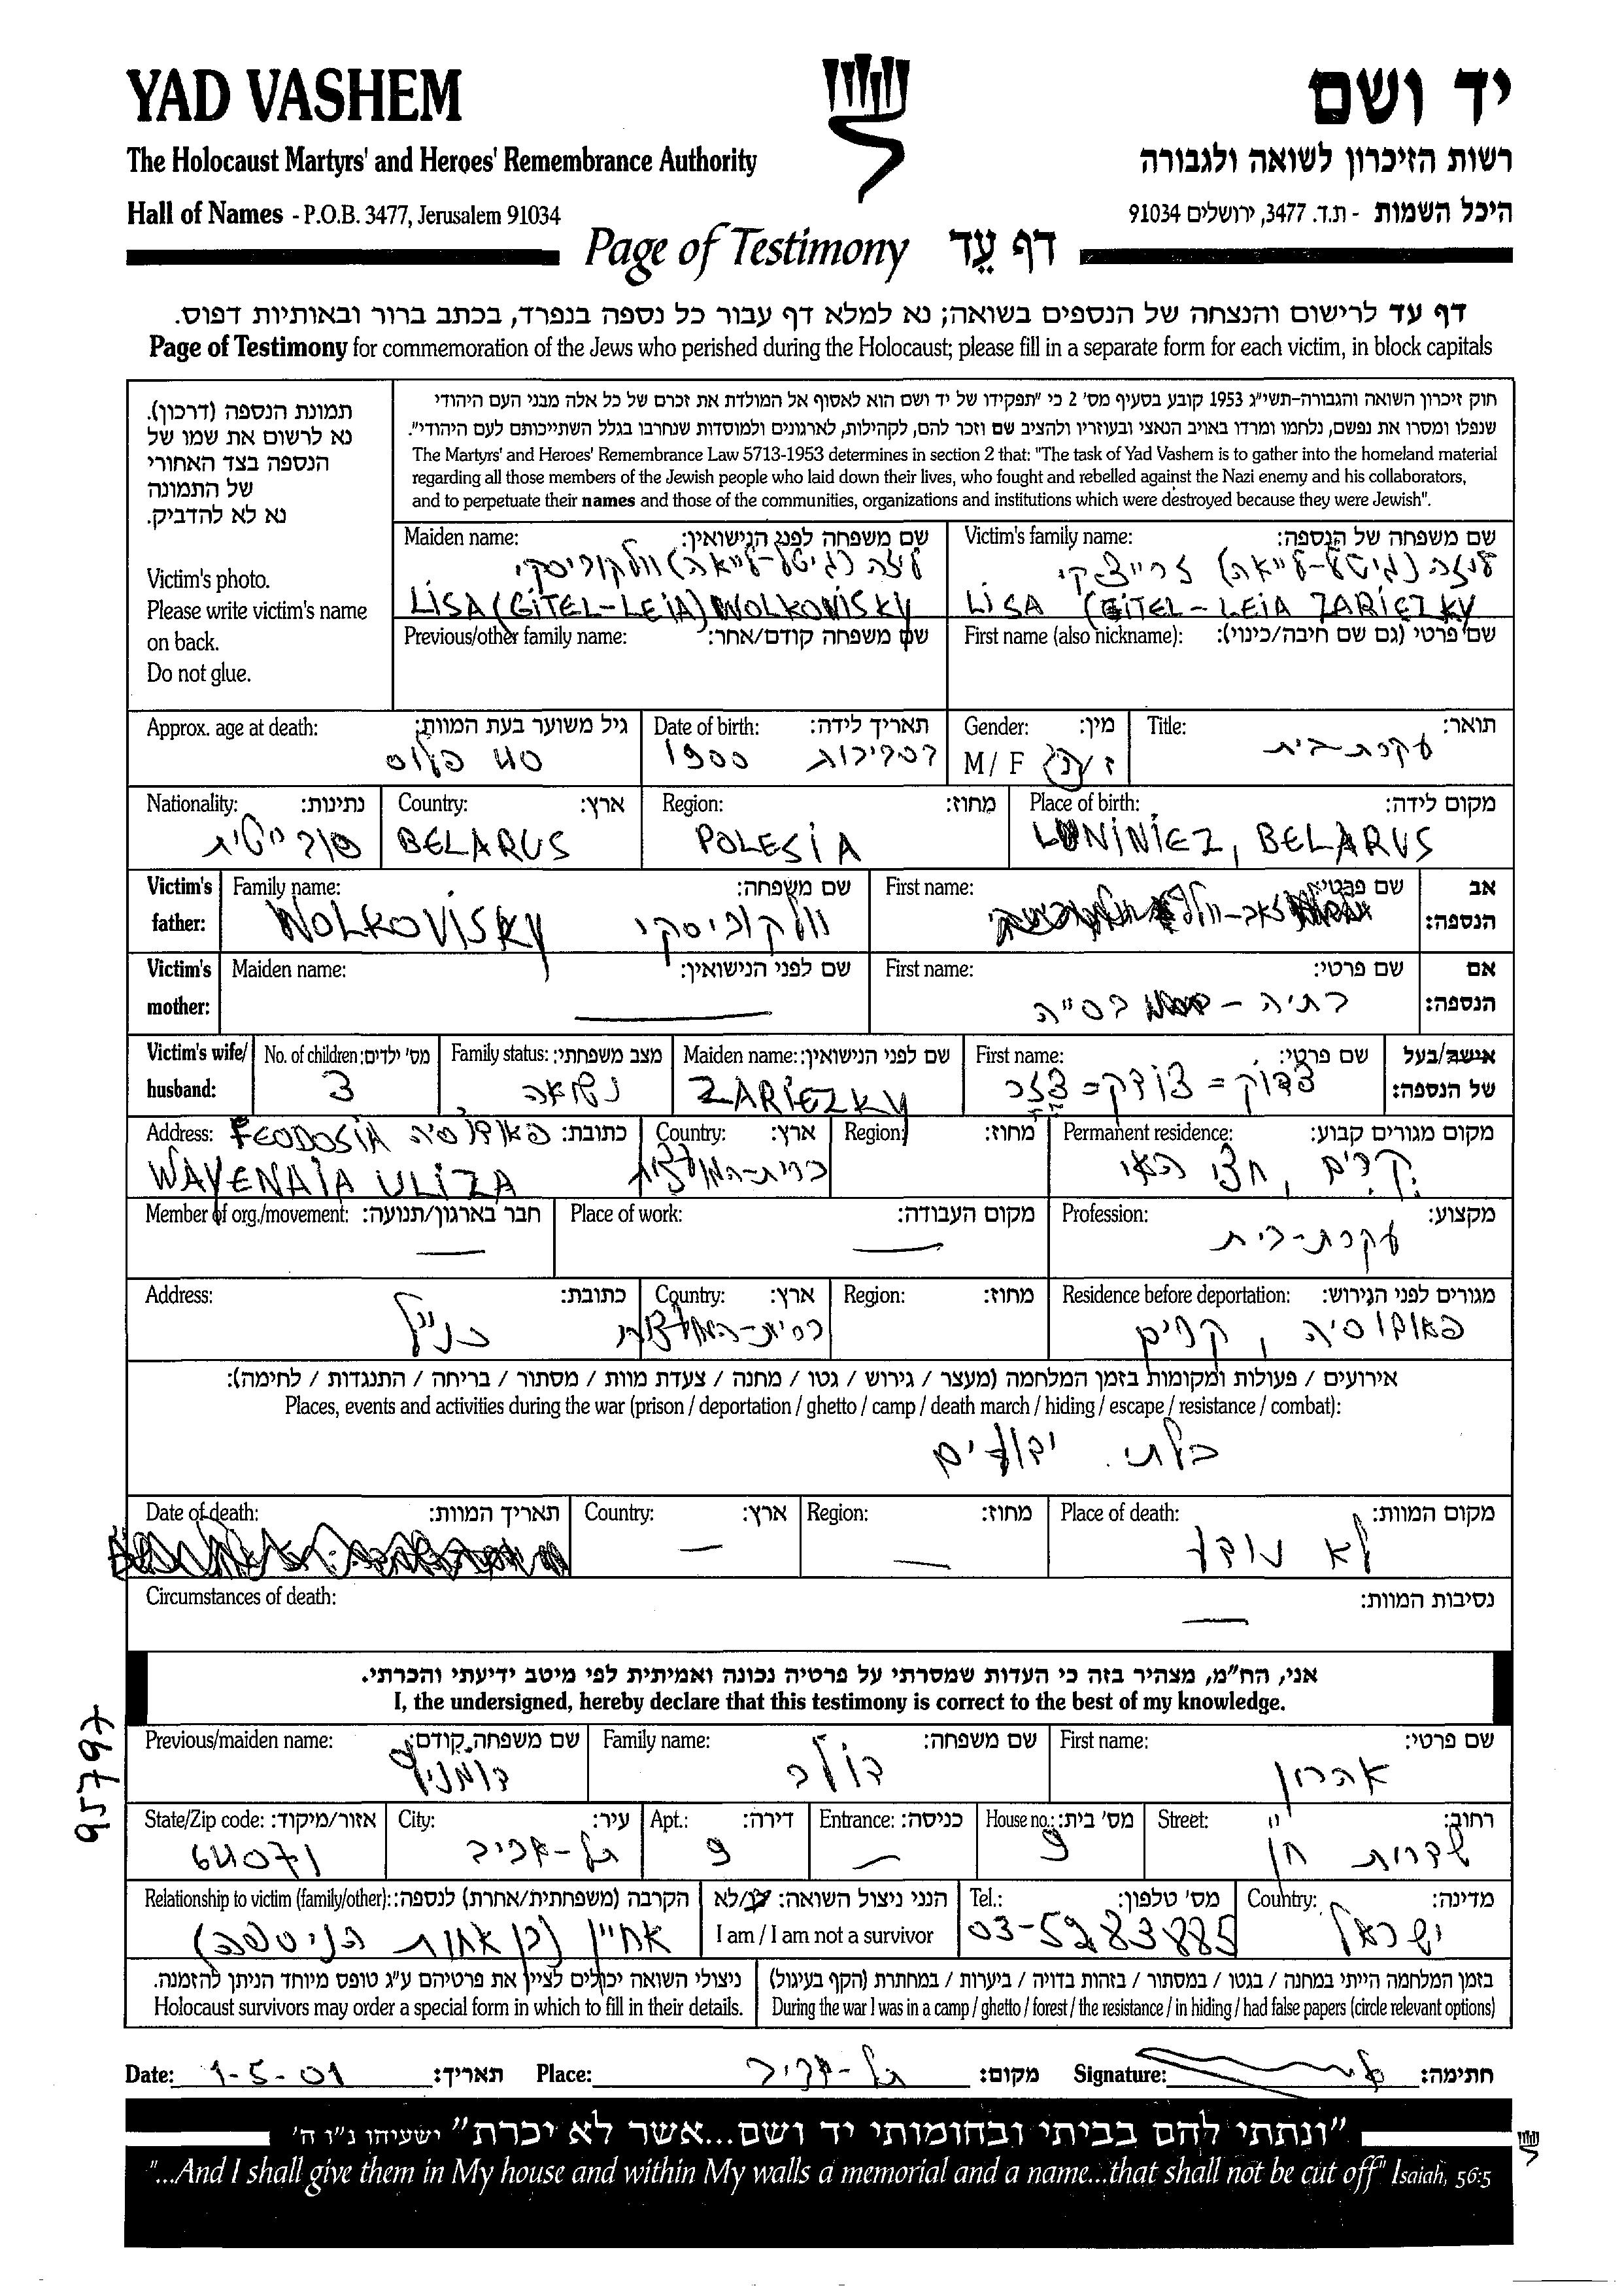 YAD VASHEM
יד ושם
The Holocaust Martyrs' and Heroes' Remembrance Authority
רשות הזיכרון לשואה ולגבורה
Hall of Names - P.O.B. 3477, Jerusalem 91034
היכל השמות - ת.ד. 3477, ירושלים 91034
Page of Testimony דף עֵד
דף עד לרישום והנצחה של הנספים בשואה; נא למלא דף עבור כל נספה בנפרד, בכתב ברור ובאותיות דפוס.
Page of Testimony for commemoration of the Jews who perished during the Holocaust; please fill in a separate form for each victim, in block capitals
תמונת הנספה (דרכון).
נא לרשום את שמו של
הנספה בצד האחורי
של התמונה
נא לא להדביק.
Victim's photo.
Please write victim's name
on back.
Do not glue.
חוק זיכרון השואה והגבורה-תשי"ג 1953 קובע בסעיף מס' 2 כי "תפקידו של יד ושם הוא לאסוף אל המולדת את זכרם של כל אלה מבני העם היהודי
שנפלו ומסרו את נפשם, נלחמו ומרדו באויב הנאצי ובעוזריו ולהציב שם וזכר להם, לקהילות, לארגונים ולמוסדות שנחרבו בגלל השתייכותם לעם היהודי".
The Martyrs' and Heroes' Remembrance Law 5713-1953 determines in section 2 that: "The task of Yad Vashem is to gather into the homeland material
regarding all those members of the Jewish people who laid down their lives, who fought and rebelled against the Nazi enemy and his collaborators,
and to perpetuate their names and those of the communities, organizations and institutions which were destroyed because they were Jewish".
Maiden name: שם משפחה לפני הנישואין:
ליזה (גיטל-לייאה) וולקוביסקי
LISA (GITEL-LEIA) WOLKOVISKY
Victim's family name: שם משפחה של הנספה:
ליזה (גיטל-לייאה) זרייצקי
LISA (GITEL-LEIA ZARIEZKY
Previous/other family name: שם משפחה קודם/אחר:
First name (also nickname): שם פרטי (גם שם חיבה/כינוי):
Approx. age at death: גיל משוער בעת המוות:
Date of birth: תאריך לידה:
בסביבות 1900
Gender: מין:
M / F ז / נ
Title: תואר:
עקרת-בית
Nationality: נתינות:
סובייטית
Country: ארץ:
BELARUS
Region: מחוז:
POLESIA
Place of birth: מקום לידה:
LUNINIEZ, BELARUS
Victim's father:
Family name: שם משפחה:
WOLKOVISKY וולקוביסקי
First name: שם פרטי:
אב הנספה:
Victim's mother:
Maiden name: שם לפני הנישואין:
First name: שם פרטי:
בתיה - בסייה
אם הנספה:
Victim's wife/ husband:
No. of children: מס' ילדים:
3
Family status: מצב משפחתי:
נשואה
Maiden name: שם לפני הנישואין:
ZARIEZKY
First name: שם פרטי:
צדוק = צודק =
אישה/בעל של הנספה:
Address: FEODOSIA פאודוסיה כתובת:
WAYENAIA ULIZA
Country: ארץ:
ברית-המועצות
Region: מחוז:
Permanent residence: מקום מגורים קבוע:
קרים, חצי האי
Member of org./movement: חבר בארגון/תנועה:
Place of work: מקום העבודה:
Profession: מקצוע:
עקרת-בית
Address: כתובת:
כנ"ל
Country: ארץ:
ברית-המועצות
Region: מחוז:
Residence before deportation: מגורים לפני הגירוש:
פאודוסיה, קרים
אירועים / פעולות ומקומות בזמן המלחמה (מעצר / גירוש / גטו / מחנה / צעדת מוות / מסתור / בריחה / התנגדות / לחימה):
Places, events and activities during the war (prison / deportation / ghetto / camp / death march / hiding / escape / resistance / combat):
בלתי ידועים
Date of death: תאריך המוות:
Country: ארץ:
Region: מחוז:
Place of death: מקום המוות:
לא נודע
Circumstances of death: נסיבות המוות:
אני, הח"מ, מצהיר בזה כי העדות שמסרתי על פרטיה נכונה ואמיתית לפי מיטב ידיעתי והכרתי.
I, the undersigned, hereby declare that this testimony is correct to the best of my knowledge.
95797
Previous/maiden name: שם משפחה קודם:
Family name: שם משפחה:
דולב
First name: שם פרטי:
אהרון
State/Zip code: אזור/מיקוד:
64071
City: עיר:
תל-אביב
Apt.: דירה:
9
Entrance: כניסה:
House no.: מס' בית:
9
Street: רחוב:
שדרות חן
Relationship to victim (family/other): הקרבה (משפחתית/אחרת) לנספה:
אחיין (בן אחות הניספה)
הנני ניצול השואה: כן/לא
I am / I am not a survivor
Tel.: מס' טלפון:
03-5283885
Country: מדינה:
ישראל
ניצולי השואה יכולים לציין את פרטיהם ע"ג טופס מיוחד הניתן להזמנה.
Holocaust survivors may order a special form in which to fill in their details.
בזמן המלחמה הייתי במחנה / בגטו / במסתור / בזהות בדויה / ביערות / במחתרת (הקף בעיגול)
During the war I was in a camp / ghetto / forest / the resistance / in hiding / had false papers (circle relevant options)
Date: 1-5-01 תאריך: Place: תל-אביב מקום: Signature: חתימה:
"ונתתי להם בביתי ובחומותי יד ושם...אשר לא יכרת" ישעיהו נ"ו ה'
"...And I shall give them in My house and within My walls a memorial and a name...that shall not be cut off" Isaiah, 56:5